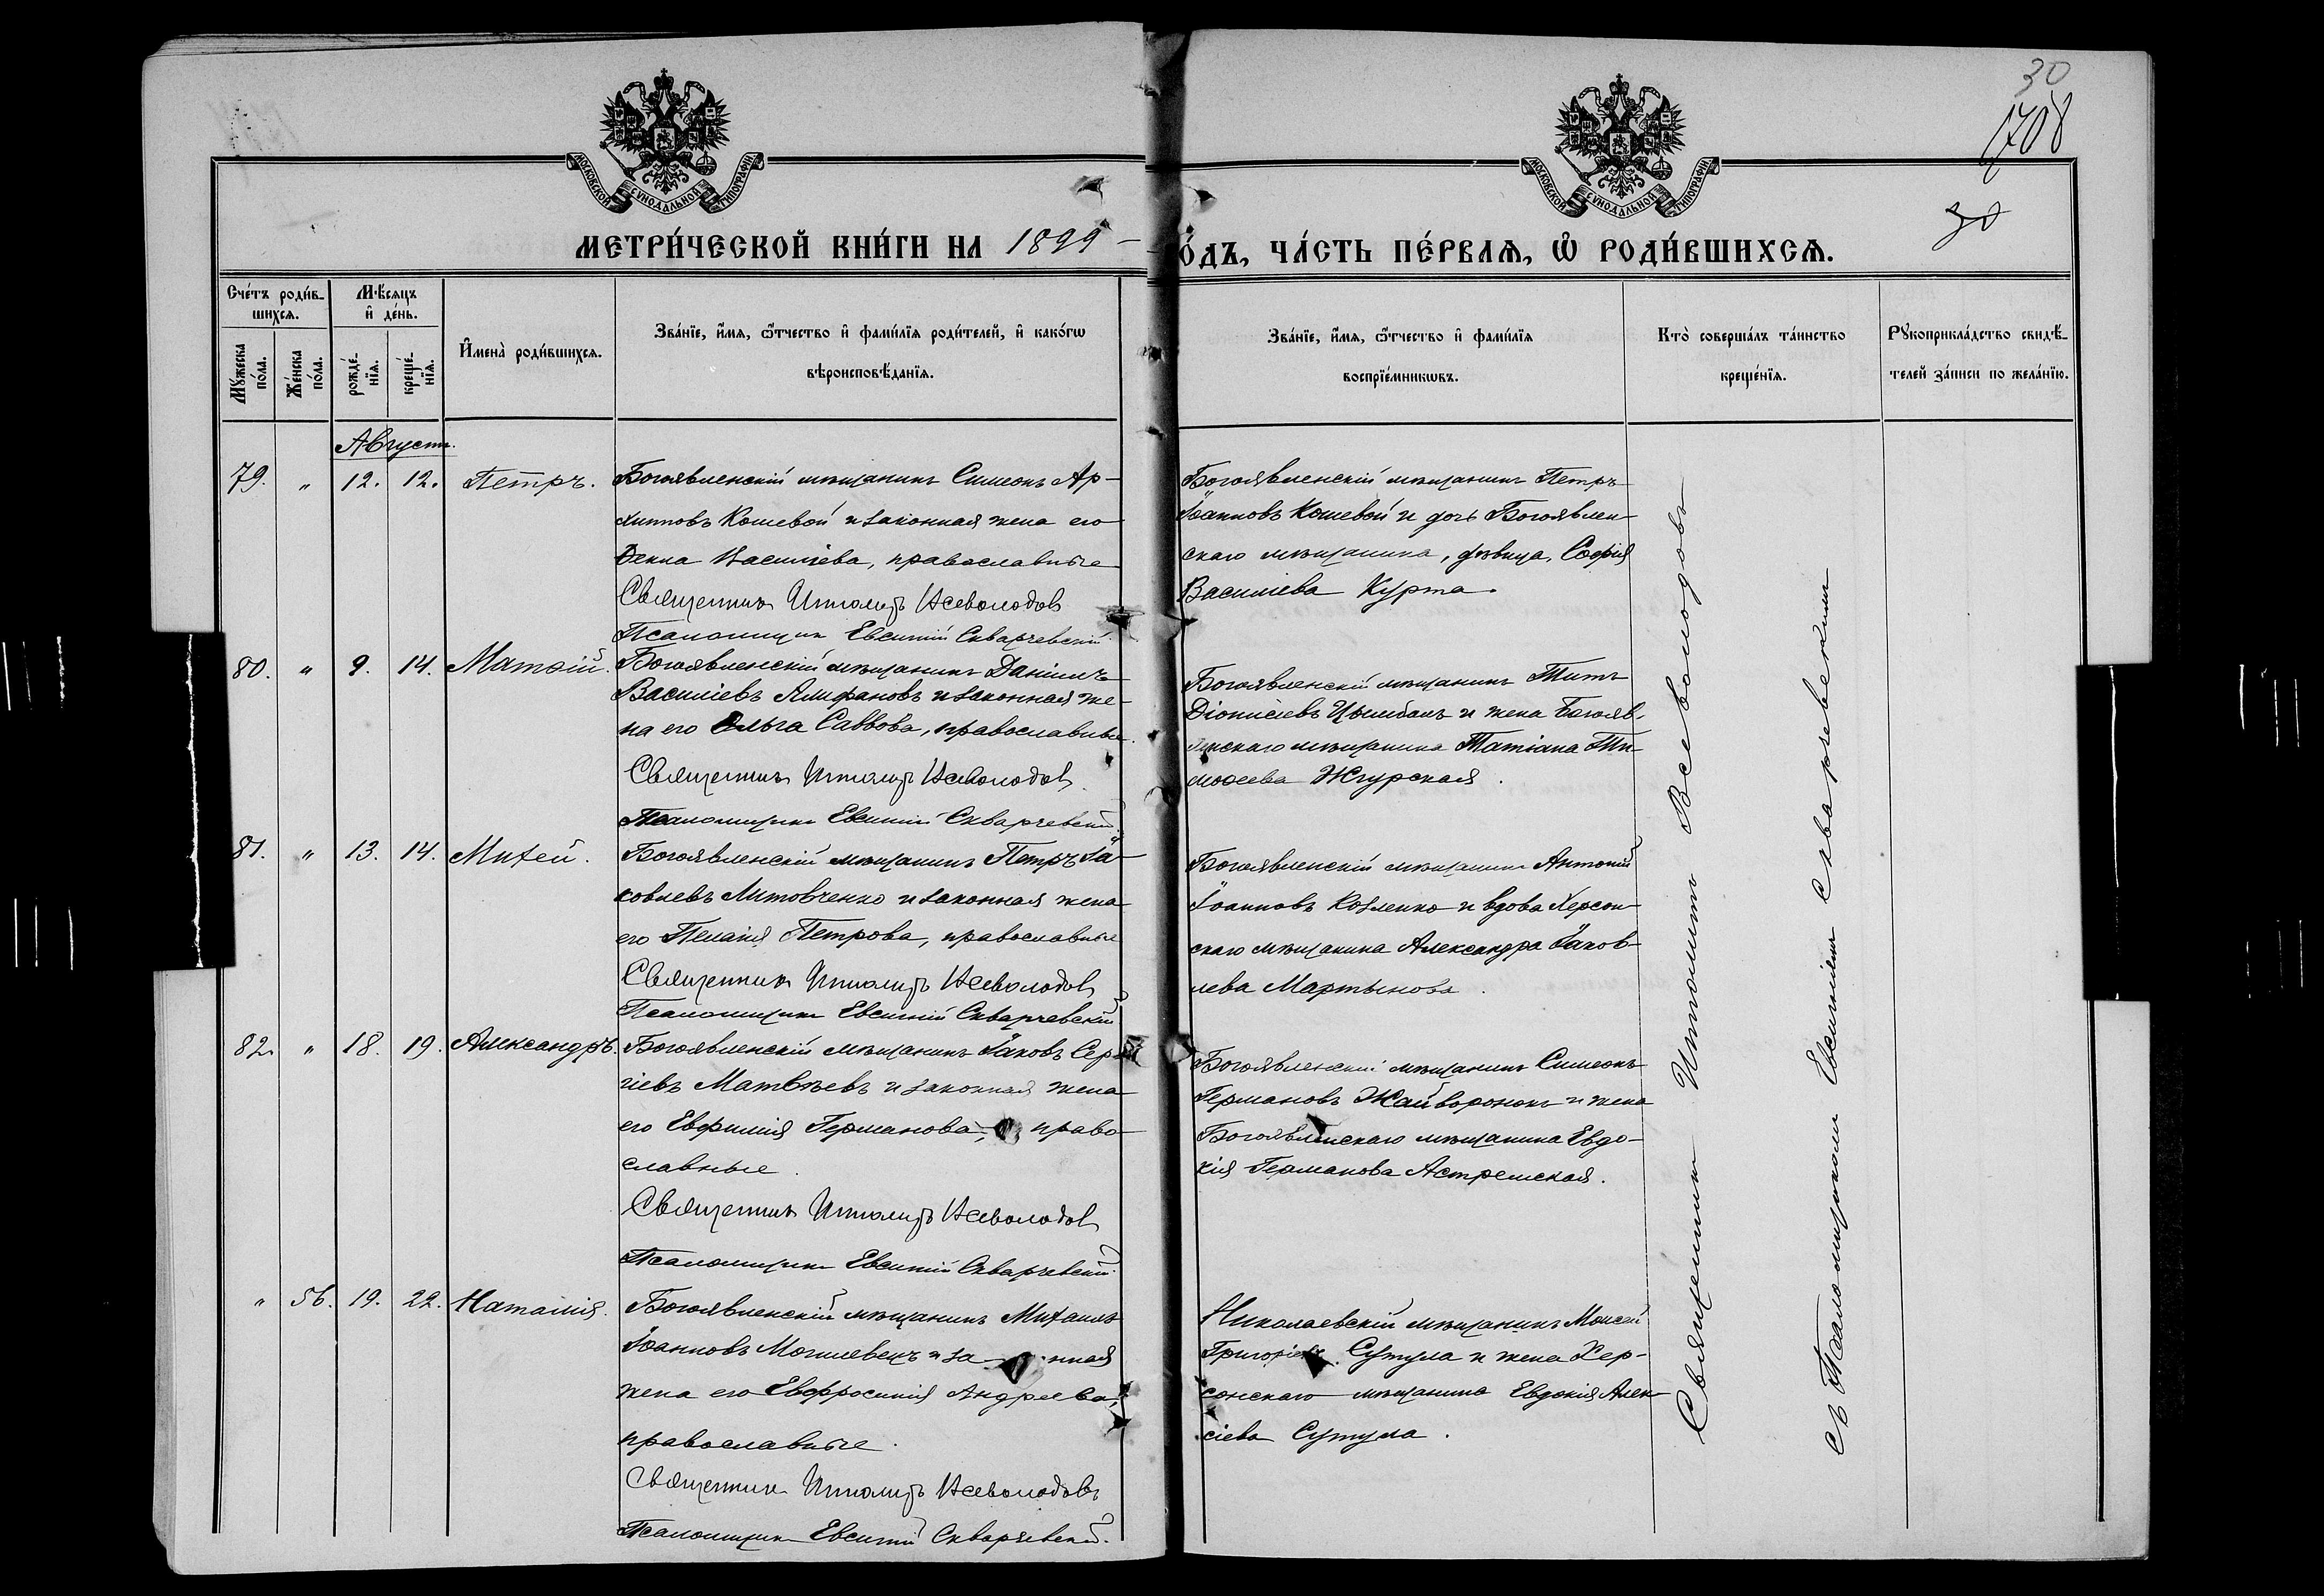 30
1708
30
МОСКОВСКОЙ СѴНОДАЛЬНОЙ ТИПОГРАФІИ
МОСКОВСКОЙ СѴНОДАЛЬНОЙ ТИПОГРАФІИ
МЕТРИ́ЧЕСКОЙ КНИ́ГИ НА 1899 –
О́ДЪ, ЧА́СТЬ ПЕ́РВАѦ, Ѽ РОДИ́ВШИХСѦ.
Сче́тъ роди́в-
шихсѧ.
Мѣ́сѧцъ
и҆ де́нь.
Мꙋ́жеска
по́ла.
Же́нска
по́ла.
рожде́-
нїѧ.
креще́-
нїѧ.
И҆мена̀ роди́вшихсѧ.
Зва́нїе, и҆́мѧ, ѻ҆́тчество и҆ фами́лїѧ роди́телей, и҆ како́гѡ
вѣроисповѣ́данїѧ.
Зва́нїе, и҆́мѧ, ѻ҆́тчество и҆ фами́лїѧ
воспрїе́мникѡвъ.
Кто̀ соверша́лъ та́инство
креще́нїѧ.
Рꙋкоприкла́дство свидѣ́-
телей за́писи по жела́нїю.
Августъ.
79. " 12. 12. Петръ.
Богоявленскій мѣщанинъ Симеонъ Ар-
хиповъ Кошевой и законная жена его
Ѳекла Василіева, православные
Священникъ Ипполитъ Всеволодовъ
Псаломщикъ Евсигній Скварчевскій
Богоявленскій мѣщанинъ Петръ
Іоанновъ Кошевой и дочь Богоявлен-
скаго мѣщанина, дѣвица, Софія
Василіева Курта.
80. " 9. 14. Матѳій.
Богоявленскій мѣщанинъ Даніилъ
Василіевъ Алифановъ и законная же-
на его Ольга Саввова, православные.
Священникъ Ипполитъ Всеволодовъ
Псаломщикъ Евсигній Скварчевскій.
Богоявленскій мѣщанинъ Титъ
Діонисіевъ Цымбалъ и жена Богояв-
ленскаго мѣщанина Татіана Ти-
моѳеева Жгурская.
81. " 13. 14. Михей.
Богоявленскій мѣщанинъ Петръ Іа-
ковлевъ Литовченко и законная жена
его Пелагія Петрова, православные
Священникъ Ипполитъ Всеволодовъ
Псаломщикъ Евсигній Скварчевскій
Богоявленскій мѣщанинъ Антоній
Іоанновъ Козленко и вдова Херсон-
скаго мѣщанина Александра Іаков-
лева Мартынова.
82. " 18. 19. Александръ.
Богоявленскій мѣщанинъ Іаковъ Сер-
гіевъ Матвѣевъ и законная жена
его Евфимія Германова, право-
славные.
Священникъ Ипполитъ Всеволодовъ
Псаломщикъ Евсигній Скварчевскій.
Богоявленскій мѣщанинъ Симеонъ
Германовъ Жайворонокъ и жена
Богоявленскаго мѣщанина Евдо-
кія Германова Астремская.
" 56. 19. 22. Наталія.
Богоявленскій мѣщанинъ Михаилъ
Іоанновъ Могилевецъ и законная
жена его Евфросинія Андреева,
православные.
Священникъ Ипполитъ Всеволодовъ
Псаломщикъ Евсигній Скварчевскій.
Николаевскій мѣщанинъ Моисей
Григоріевъ Сутула и жена Хер-
сонскаго мѣщанина Евдокія Алек-
сіева Сутула.
Священникъ Ипполитъ Всеволодовъ
съ Псаломщикомъ Евсигніемъ Скварчевскимъ